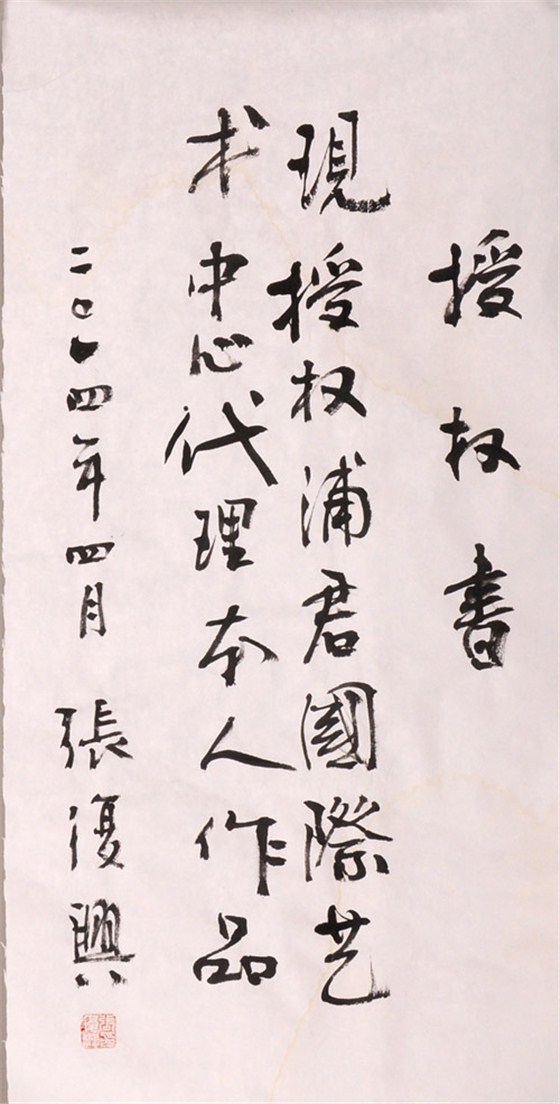 授权書
現授权浦君國際艺
术中心代理本人作品
二〇〇四年四月 張復興